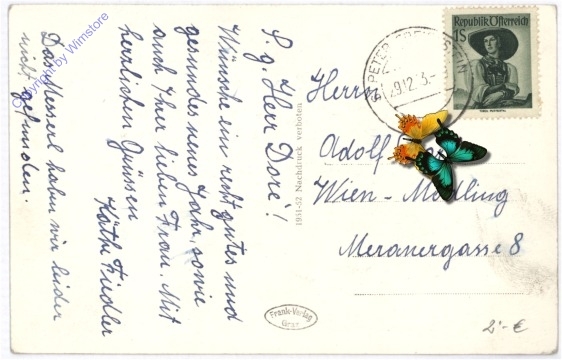 S. g. Herr Doré!
Wünsche ein recht gutes und
gesundes neues Jahr, sowie
auch Ihrer lieben Frau. Mit
herzlichen Grüssen
Käthe Friedler
Das Messerl habn wir leider
nicht gefunden.
Copyright by Wimstore
1951-52 Nachdruck verboten
Frank-Verlag
Graz
Republik Österreich
1S
ST. PETER
Herrn
Adolf
Wien - Mödling
Meranergasse 8
2'- €